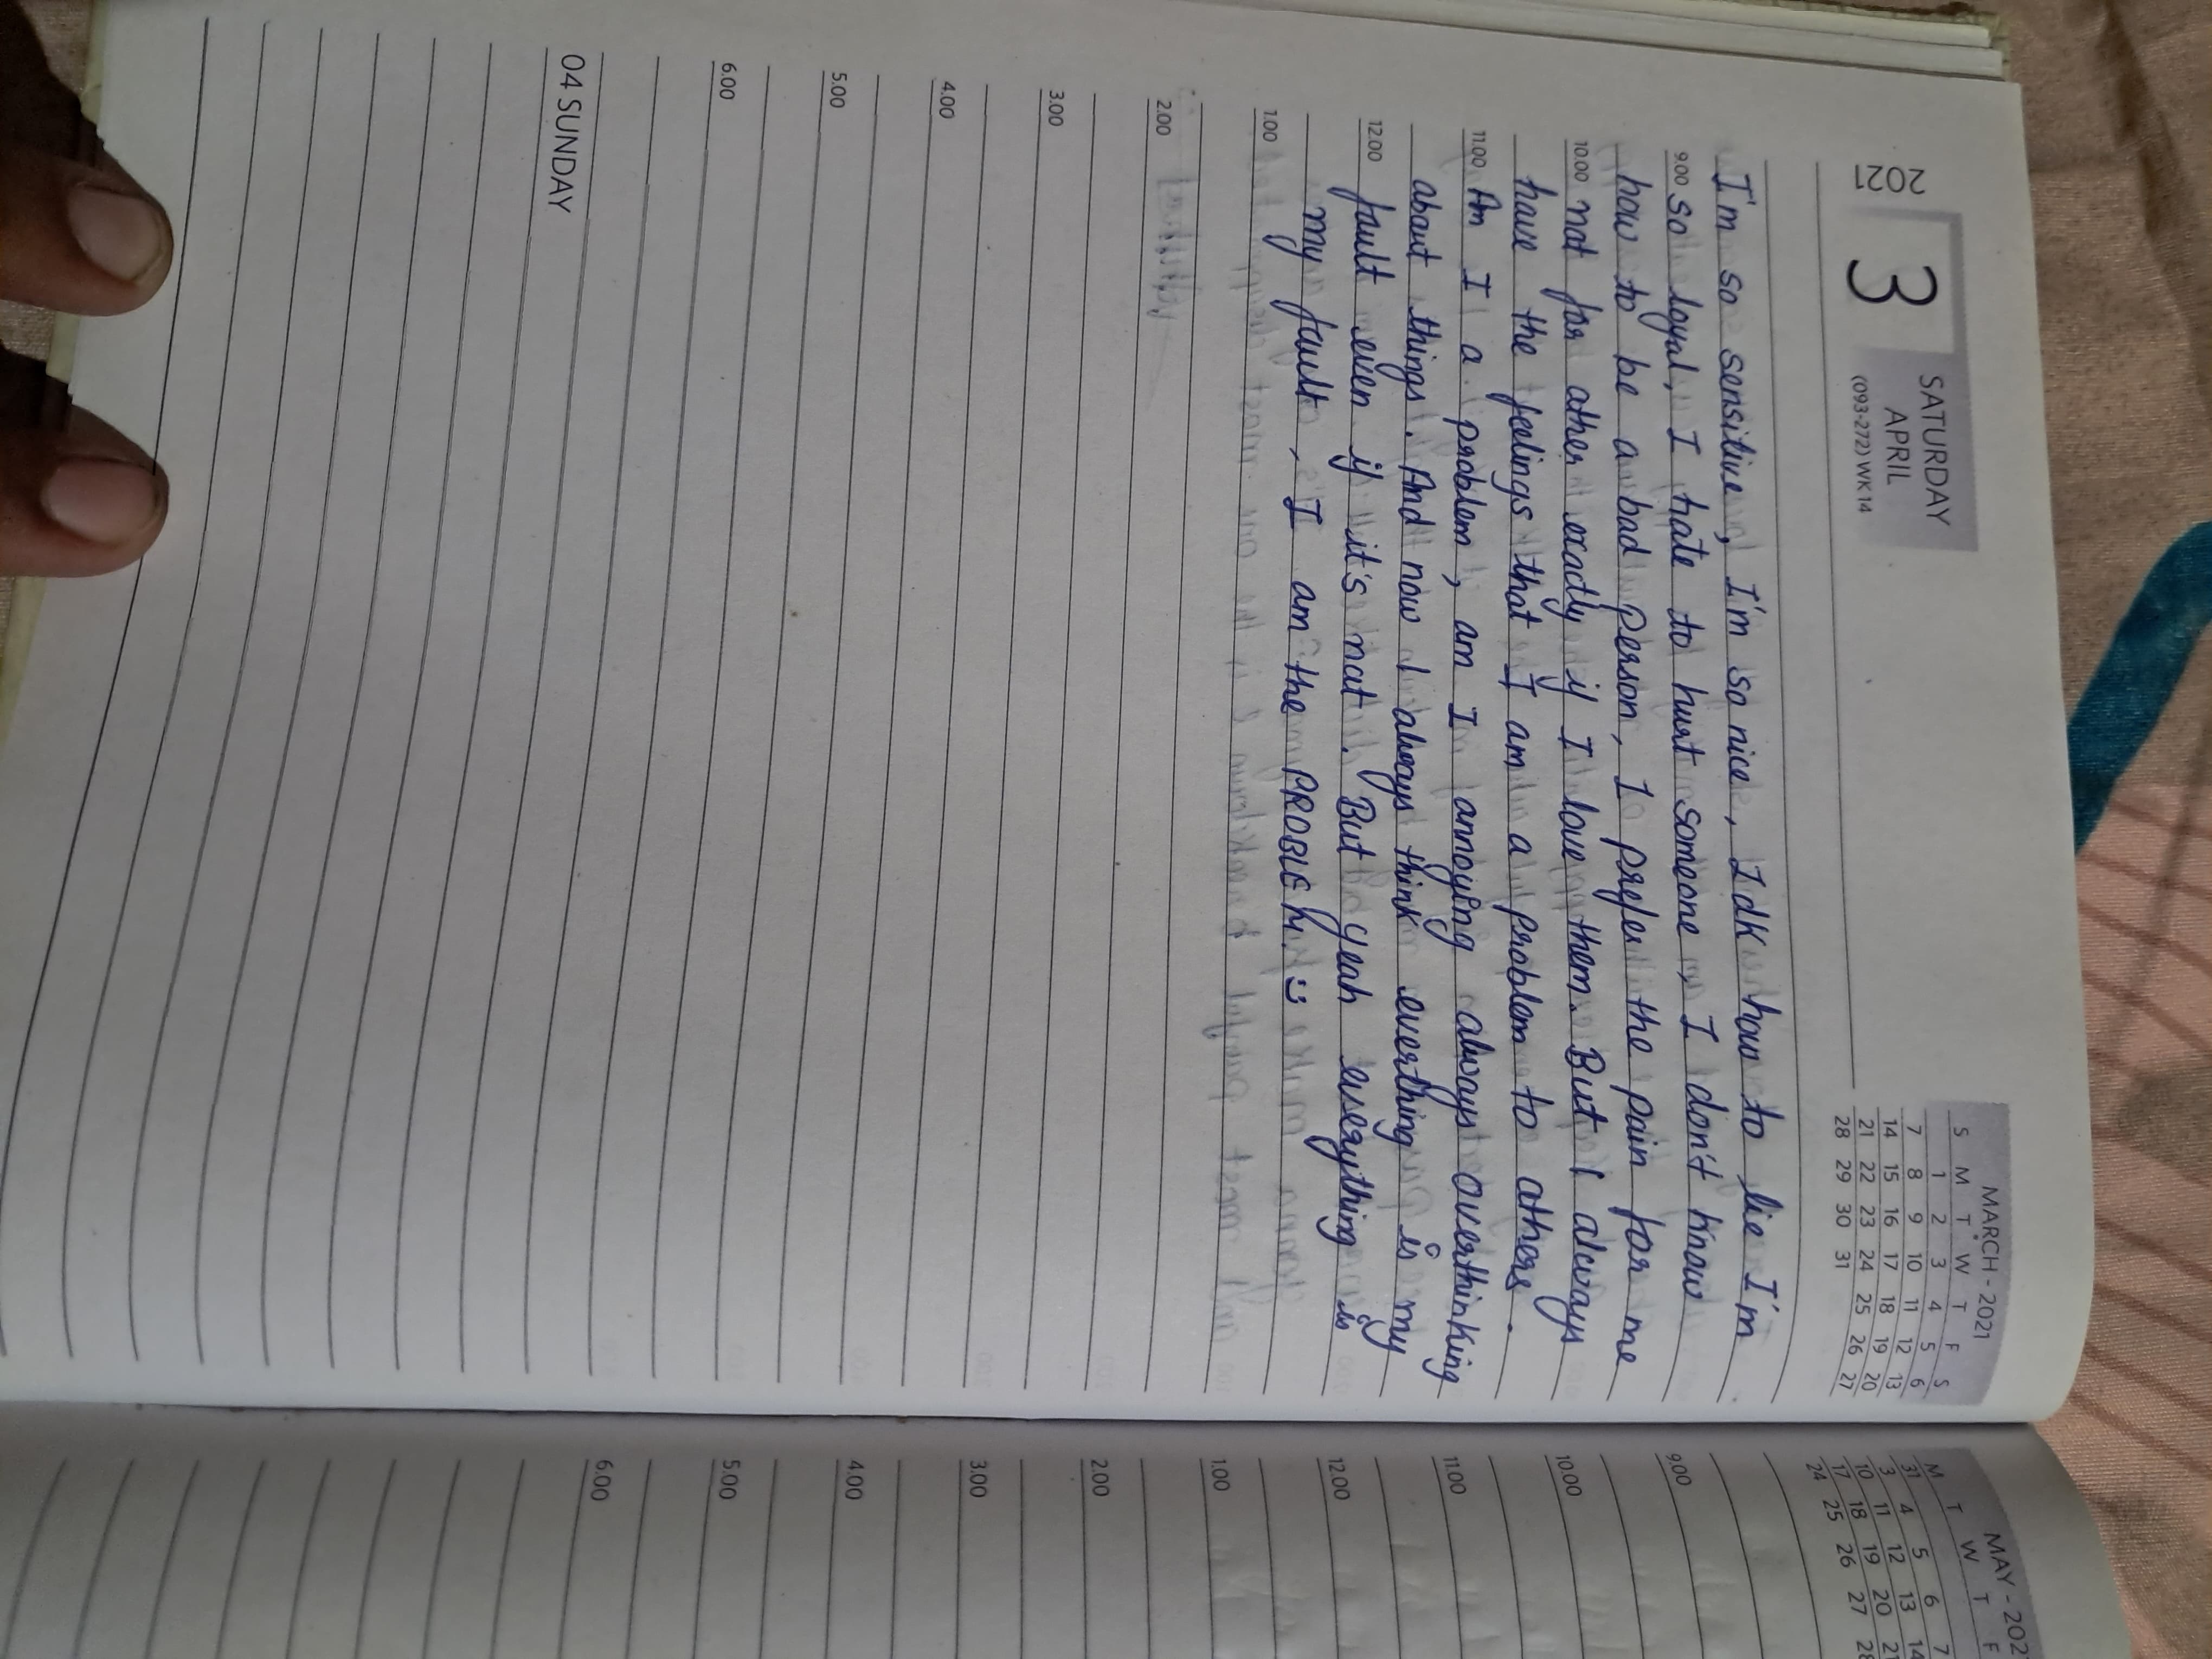 2021
3
SATURDAY
APRIL
(093-272) WK 14
MARCH - 2021
S M T W T F S
1 2 3 4 5 6
7 8 9 10 11 12 13
14 15 16 17 18 19 20
21 22 23 24 25 26 27
28 29 30 31
I'm so sensitive, I'm so nice, Idk how to lie I'm
9.00 so loyal, I hate to hurt someone, I don't know
how to be a bad person, I prefer the pain for me
10.00 not for other exactly if I love them. But I always
have the feelings that I am a problem to others.
11.00 Am I a problem, am I annoying always overthinking
about things. And now I always think everthing is my
12.00 fault even if it's not. But yeah everything is
my fault, I am the PROBLEM. :)
1.00
2.00
3.00
4.00
5.00
6.00
04 SUNDAY
MAY - 202
M T W T F
31
3 4 5 6 7
10 11 12 13 14
17 18 19 20 21
24 25 26 27 28
9.00
10.00
11.00
12.00
1.00
2.00
3.00
4.00
5.00
6.00